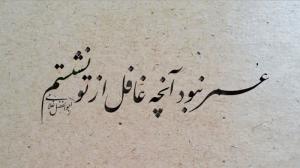 عمر نبود آنچه غافل از تو نشستم